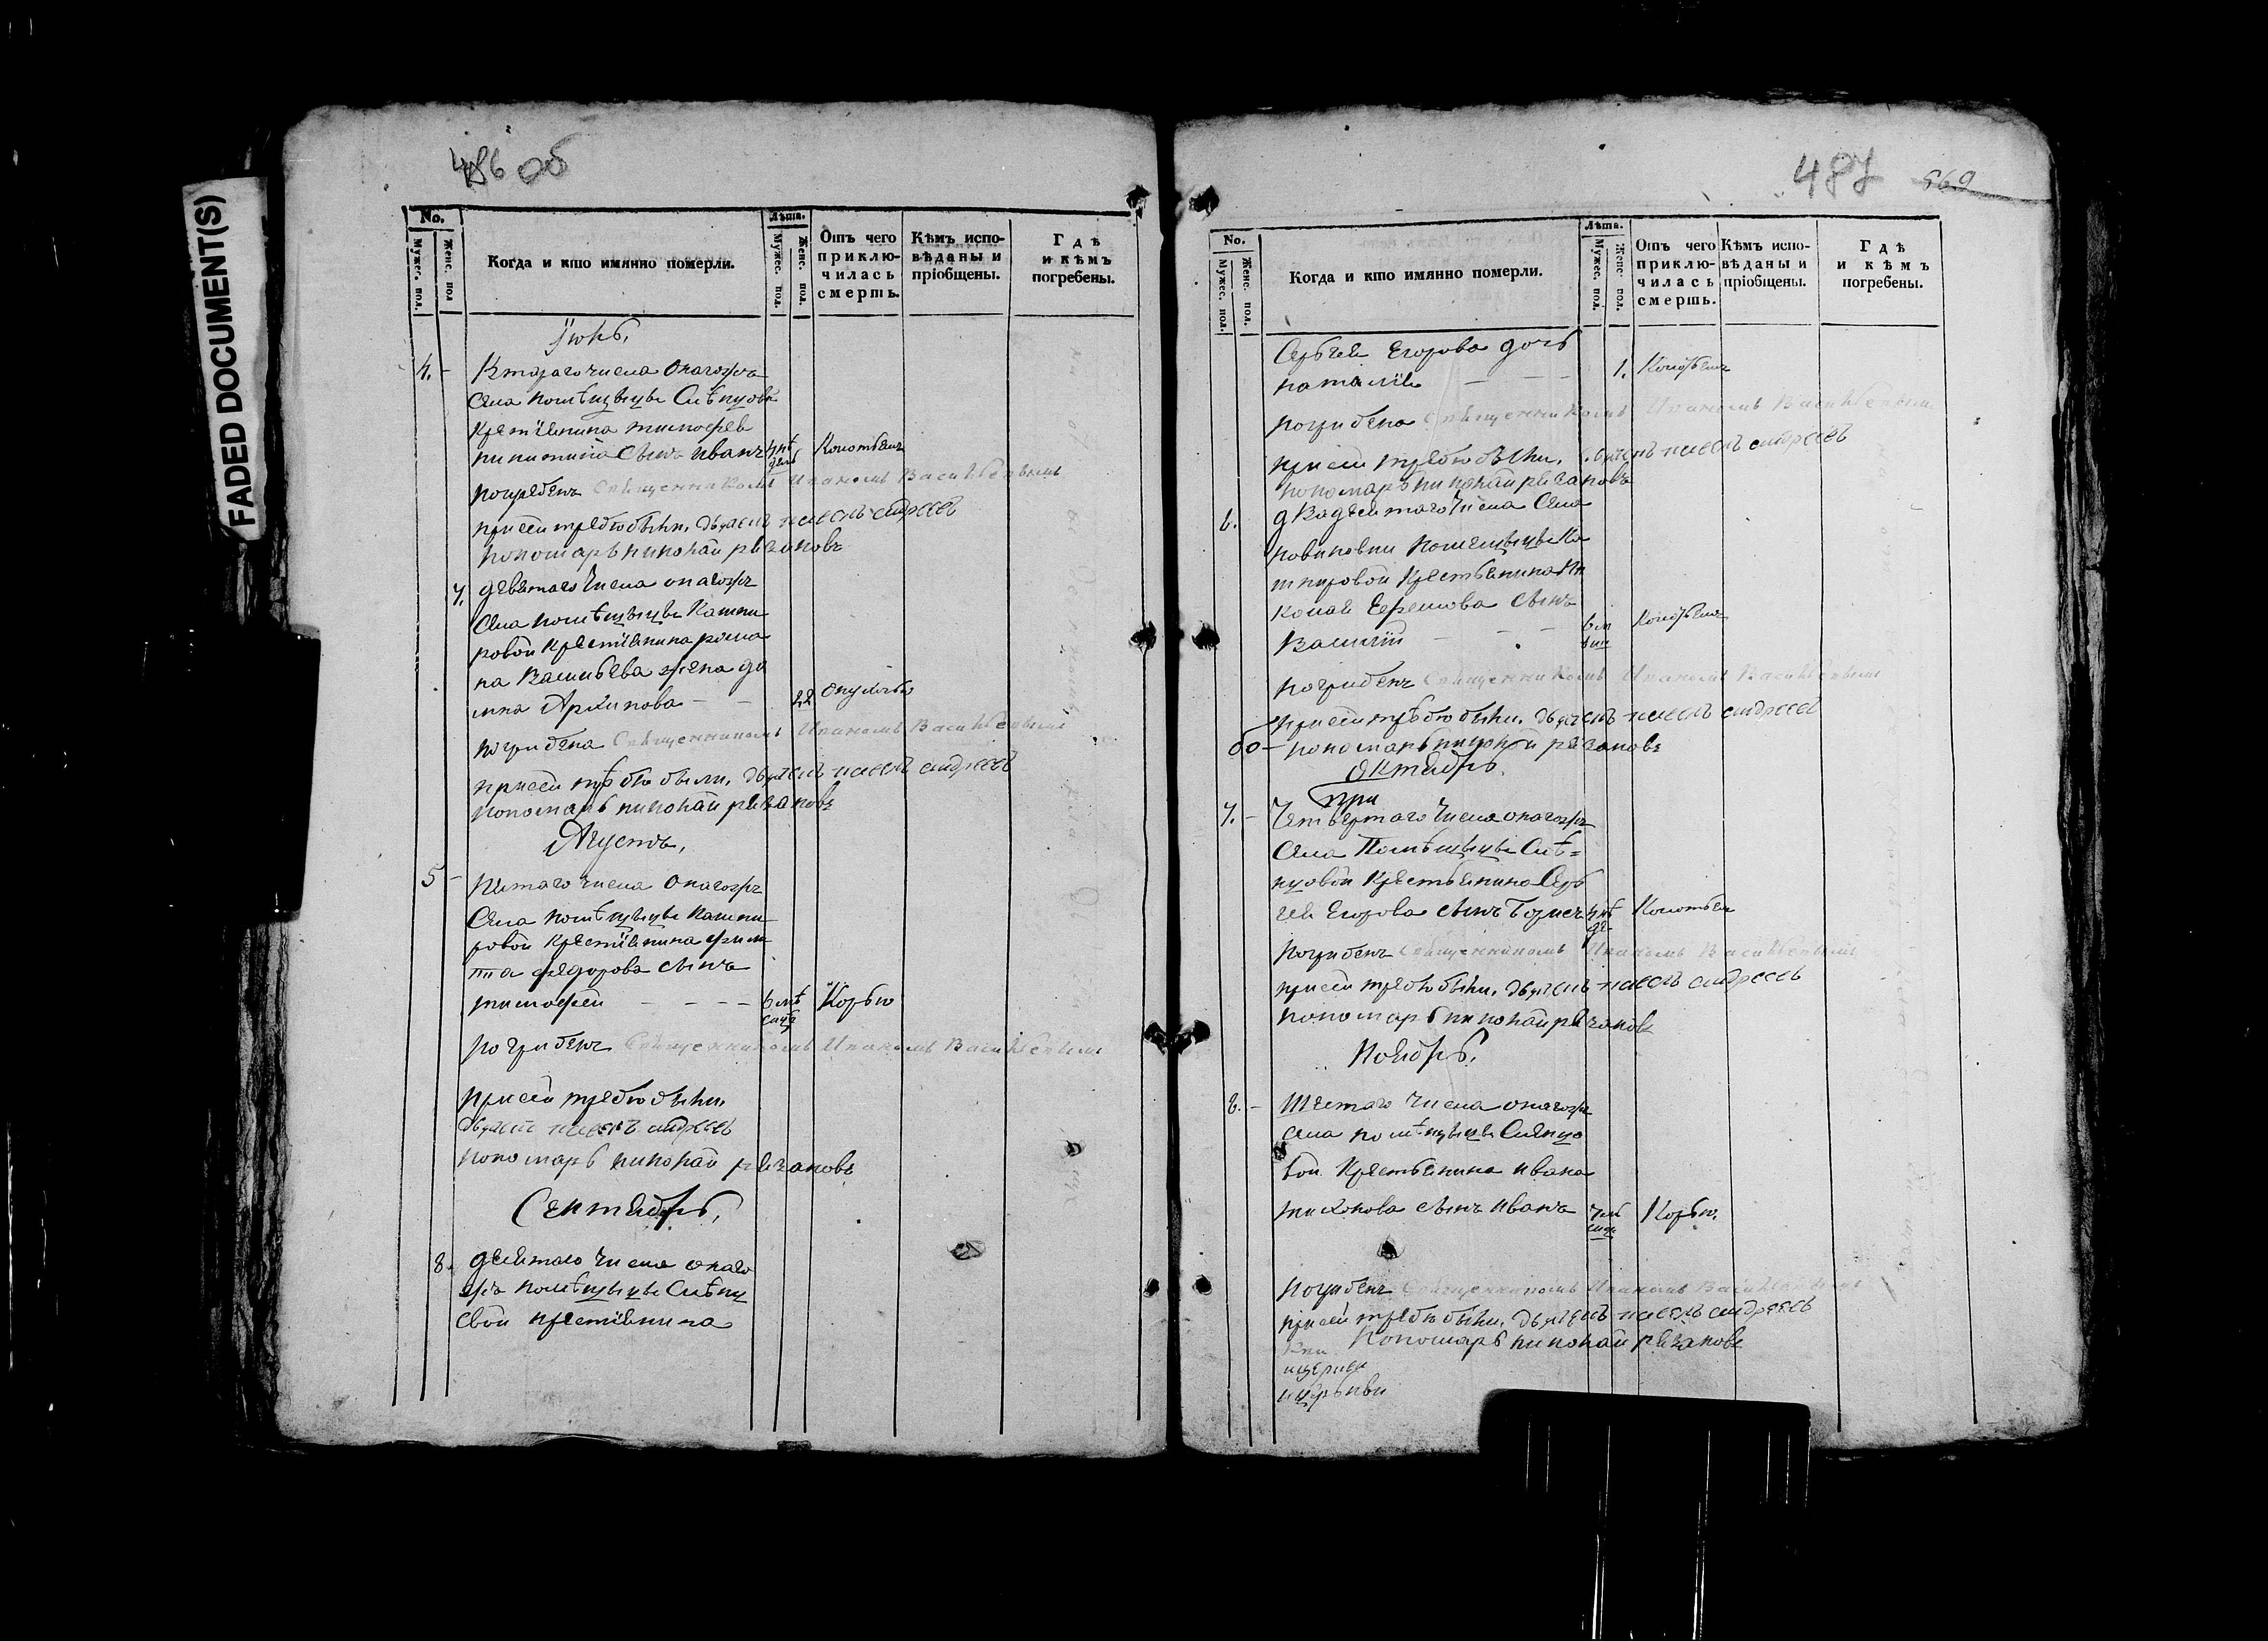 FADED DOCUMENT(S)
486 об
No.
Мужес. пол.
Женс. пол
Когда и кто имянно померли.
Лѣта.
Мужес. пол.
Женс. пол.
Отъ чего приклю-чилась смерть.
Кѣмъ испо-вѣданы и пріобщены.
Гдѣ и кѣмъ погребены.
Iюнь,
4. - Втораго числа онагожъ
села помѣщицы Слѣпцовой
крестіянина тимофея
никитина сынъ иванъ Конотьемъ
погребенъ Священникомъ Иваномъ Васильевымъ
при сей требѣ были, дьячекъ андреевъ
пономарь николай рязановъ
7. девятаго числа онагожъ
села помѣщицы Кашпи
ровой крестіянина рома
на Васильева жена до
мна Архипова - - 22 опухолью
погребена Священникомъ Иваномъ Васильевымъ
при сей требѣ были, дьячекъ андреевъ
пономарь николай рязановъ
Августъ,
5 - пятаго числа онагожъ
села помѣщицы Кашпи
ровой крестіянина
федорова сынъ
тимофей - - - - 6 мѣ сяцъ Корью
погребенъ Священникомъ Иваномъ Васильевымъ
при сей требѣ были,
дьячекъ андреевъ
пономарь николай рязановъ
Сентябрь,
8. девятаго числа онаго
жъ помѣщицы Слѣпц
овой крестіянина
487 969
No.
Мужес. пол.
Женс. пол.
Когда и кто имянно померли.
Лѣта.
Мужес. пол.
Женс. пол.
Отъ чего приклю-чилась смерть.
Кѣмъ испо-вѣданы и пріобщены.
Гдѣ и кѣмъ погребены.
Сергѣя Егорова дочь
наталія - - - 1. Конотьемъ
погребена Священникомъ Иваномъ Васильевымъ
при сей требѣ были, дьячекъ андреевъ
пономарь николай рязановъ
6. двадесятаго числа села
помѣщицы Ка
шпировой крестьянина Ни
колая Ефремова сынъ
Василій - - - Конотьемъ
погребенъ Священникомъ Иваномъ Васильевымъ
при сей требѣ были, дьячекъ андреевъ
пономарь николай рязановъ
Октябрь.
при
7. - Четвертаго числа онагожъ
села Помѣщицы Слѣ=
пцовой крестьянина Сер
гея Егорова сынъ Борисъ Конотьемъ
погребенъ Священникомъ Иваномъ Васильевымъ
при сей требѣ были, дьячекъ андреевъ
пономарь николай рязановъ
Ноябрь.
8. - Шестаго числа онагожъ
села помѣщицы Слѣпцо
вой крестьянина ивана
тихонова сынъ иванъ Корью.
погребенъ Священникомъ Иваномъ Васильевымъ
при сей требѣ были, дьячекъ андреевъ
Пономарь николай рязановъ